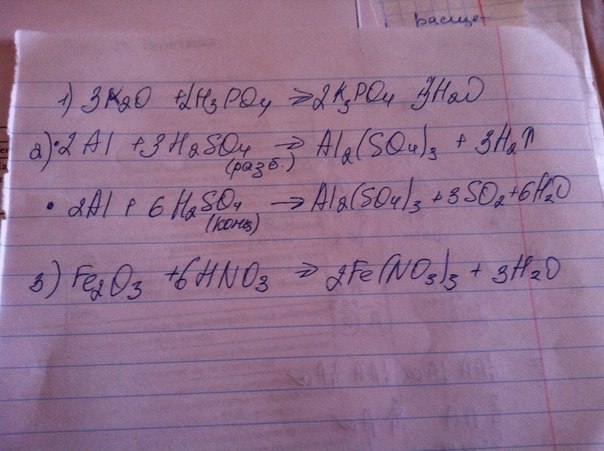 расще-
1) 3K2O + 2H3PO4 => 2K3PO4 + 3H2O
2) • 2Al + 3H2SO4 (разб.) → Al2(SO4)3 + 3H2↑
• 2Al + 6H2SO4 (конц) → Al2(SO4)3 + 3SO2 + 6H2O
3) Fe2O3 + 6HNO3 => 2Fe(NO3)3 + 3H2O